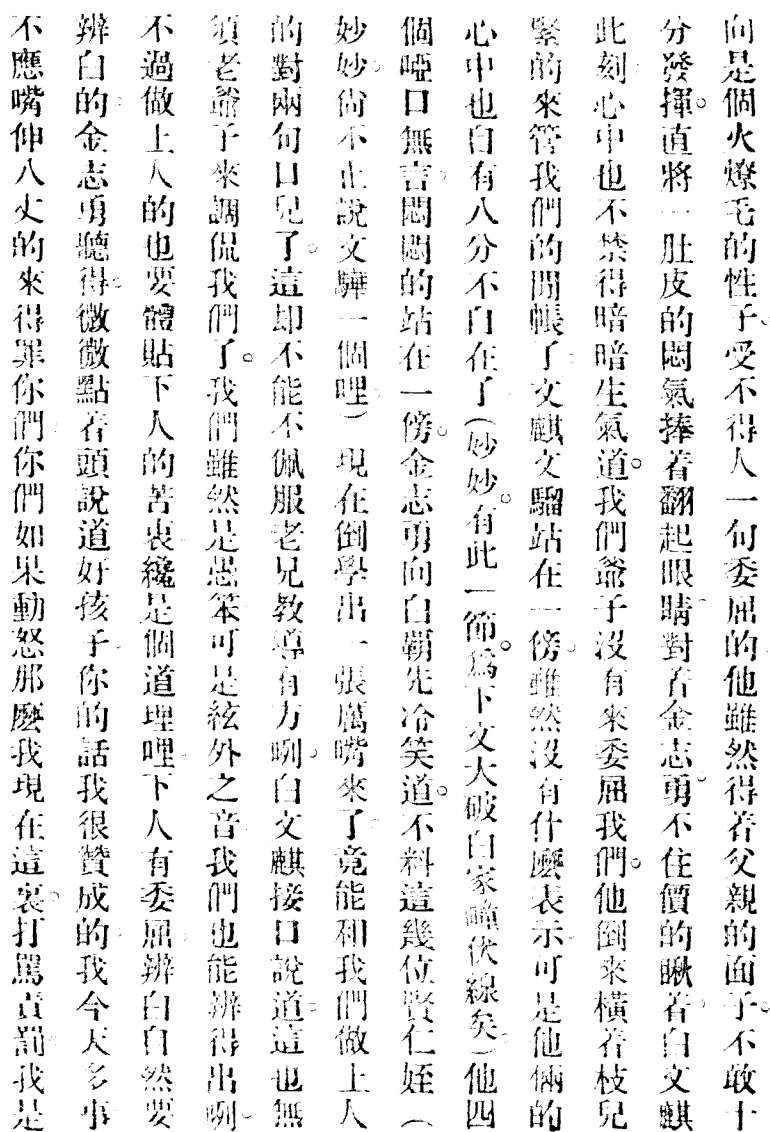 向是個火燎毛的性子。受不得人一句委屈的他雖然得着父親的面子。不敢十
分發揮。直將一肚皮的悶氣捧着翻起眼睛對着金志勇。不住價的瞅着。白文麒
此刻心中也不禁得暗暗生氣道。我們爺子沒有來委屈我們。他倒來橫着枝兒
緊的來管我們的閒帳了。文麒文騮站在一傍。雖然沒有什麼表示。可是他倆的
心中也自有八分不自在了(妙妙。有此一節。爲下文大破白家疃伏線矣。)他四
個啞口無言。悶悶的站在一傍。金志勇向白霸先冷笑道。不料這幾位賢仁姪(
妙妙。尚不止說文驊一個哩)現在倒學出一張厲嘴來了。竟能和我們做上人
的對兩句口兒了。這却不能不佩服老兄教導有方咧。白文麒接口說道。這也無
須老爺子來調侃我們了。我們雖然是愚笨可是絃外之音我們也能辨得出咧。
不過做上人的也要體貼下人的苦衷。纔是個道理哩。下人有委屈辨白。自然要
辨白的。金志勇聽得。微微點着頭說道好孩子。你的話我很贊成的。我今天多事。
不應嘴伸八丈的來得罪你們。你們如果動怒。那麼我現在這裏。打罵責罰。我是